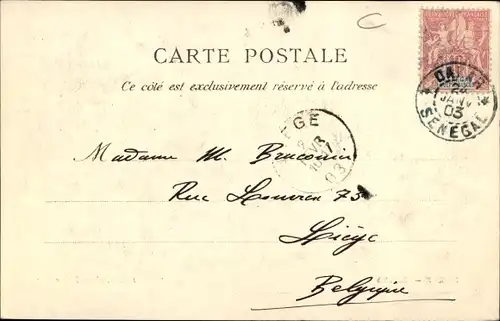 C
CARTE POSTALE
Ce côté est exclusivement réservé à l'adresse
DAKAR
JANV
03
SENEGAL
LIEGE
03
Madame M. Braconier
Rue Louvrex 73
Liége
Belgique